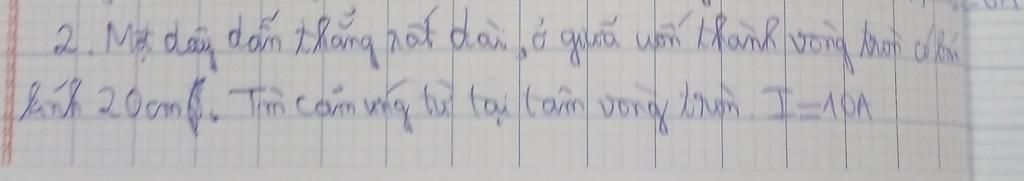 2. Một dây dẫn thẳng rất dài, ở giữa uốn thành vòng tròn đkm
kính 20cm. Tìm cảm ứng từ tại tâm vòng tròn. I = 10A